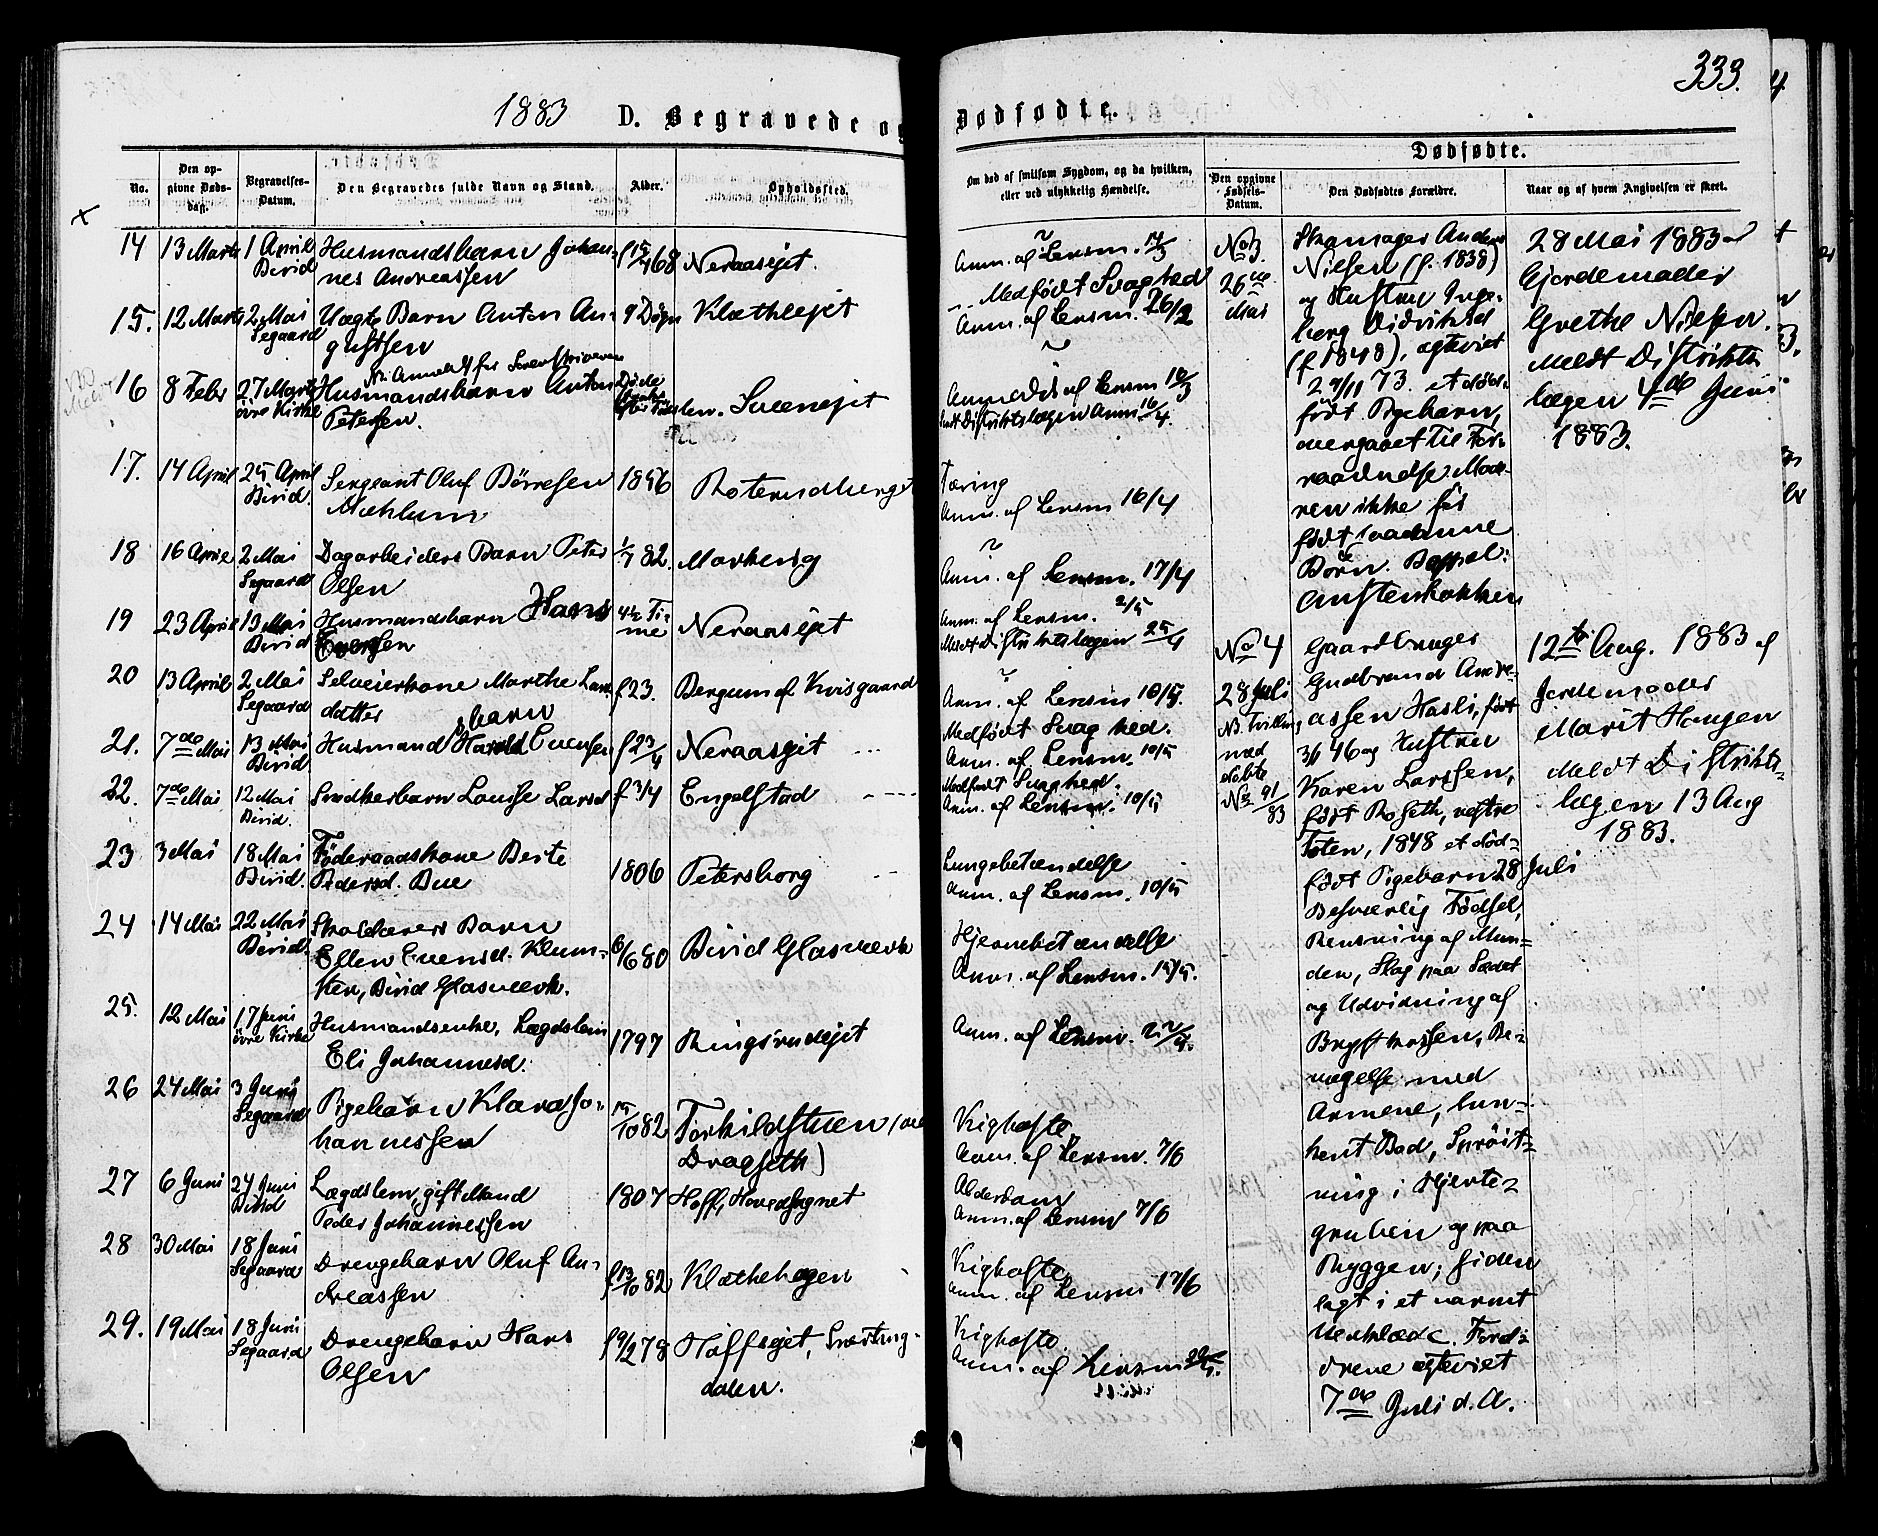 333.
1883 D. Begravede og Dødfødte.
No.
Den opgivne Dødsdag.
Begravelses-Datum.
Den Begravedes fulde Navn og Stand.
Alder.
Opholdssted.
Om død af smitsom Sygdom, og da hvilken,
eller ved ulykkelig Hændelse.
Dødfødte.
Den opgivne Fødsels-Datum.
Den Dødfødtes Forældre.
Naar og af hvem Angivelsen er skeet.
14 13 Marts 1 April Birid Husmandsbarn Johan-
nes Andreassen
f 68 Neraasejet.
? Anm. af Lensm. 14/3
15. 12 Marts 2 Mai Segaard Uægte Barn Anton Au-
gustsen
9 Døgn Klæthsejet
Medfødt Svaghed
Anm. af Lensm. 26/2
16 8 Febr 27 Marts øvre Kirke Husmandsbarn Anton
Petersen.
Sveenejet
Anmeldt af Lensm
Meldt Distriktslægen Anm 16/4.
17. 14 April 25 April Birid. Sergeant Oluf Børresen
Mæhlum
1856
Tæring
Anm. af Lensm 16/4
18 16 April 2 Mai Segaard Dagarbeiders Barn Peter
Olsen
1/7 82. Markeng
? Anm. af Lensm. 17/4
19 23 April 13 Mai Birid Husmandsbarn Hans
Evensen
4½ Ti-
me Neraasejet
Anm. af Lensm. 2/5
Meldt Distriktslægen 25/4
20 13 April 2 Mai Segaard Selveierkone Marthe Lars-
datter
f 23. Bergum af Kvisgaard
? Anm. af Lensm 10/5
21. 7de Mai 13 Mai Birid Husmandsbarn Harald Evensen
f 23/4 Neraasejet
Medfødt Svaghed.
Anm. af Lensm. 10/5
22. 7de Mai 12 Mai Birid. Snedkerbarn Lousse Larsd
f 3/4 Engelstad
Medfødt Svaghed.
Anm. af Lensm. 10/5
23 3 Mai 18 Mai Birid. Føderaadskone Berte
Pedersd. Bue
1806 Petersborg
Lungebetændelse
Anm. af Lensm. 10/5
24 14 Mai 22 Mai Birid. Skolelærers Barn
Ellen Evensd. Klum-
sten, Birid Glasværk.
6/6 80 Birid Glasværk
Hjernebetændelse
Anm. af Lensm. 15/5.
25. 12 Mai 17 Juni øvre Kirke Husmandsenke, Lægdslem
Eli Johannesd.
1797 Ringsrudejet
Anm. af Lensm. 22/5.
26 24 Mai 3 Juni Segaard Pigebarn Klara Jo-
hannessen
15/10 82 Torkildstuen
Dragseth)
Kighoste
Anm. af Lensm. 7/6
27 6 Juni 24 Juni Birid Lægdslem, gift Mand
Peder Johannessen
1807 Hoff, Hovedsognet
Alderdom
Anm. af Lensm 7/6
28 30 Mai 18 Juni Segaard Drengebarn Oluf An-
dreassen
f 13/10 82 Klæthehagen
Kighoste
Anm. af Lensm 17/6
29. 19 Mai 18 Juni Segaard Drengebarn Hans
Olsen
f 9/2 78 Hoffsejet, Snertings-
dalen.
Kighoste
Anm. af Lensm
No 3.
26de Mai
Skomager Anders
Nielsen (f. 1838)
og Hustru Inge-
borg Didriksd
(f 1848), ægteviet
73. et død-
født Pigebarn,
overgaaet til For-
raadnelse. Mode-
ren ikke før
født saadanne
Børn. Bopæl:
Austenbakken
28 Mai 1883 af
Gjordemoder
Grethe Nielsen.
Meldt Distrikts-
lægen 4de Juni
1883.
No 4
28 Juli
Nb. Tvilling
med
døbte
No 91/83
Gaardbruger
Gudbrand Andre-
assen Hasli, født
3/6 46 og Hustru
Karen Larssen,
født Roseth, vestre
Toten, 1848 et død-
født Pigebarn 28 Juli
Besværlig Fødsel,
Rensning af Mun-
den, Slag paa Sædet
og Udvidning af
Brystkassen, Be-
vægelse med
Armene, lun-
kent Bad, Sprøit-
ning i Hjerte-
gruben og paa
Ryggen; siden
lagt i et varmt
Uldklæde. Foræl-
drene ægteviet
7de Juli d. A.
12te Aug. 1883 af
Jordemoder
Marit Haugen
Meldt Distrikts-
lægen 13 Aug
1883.